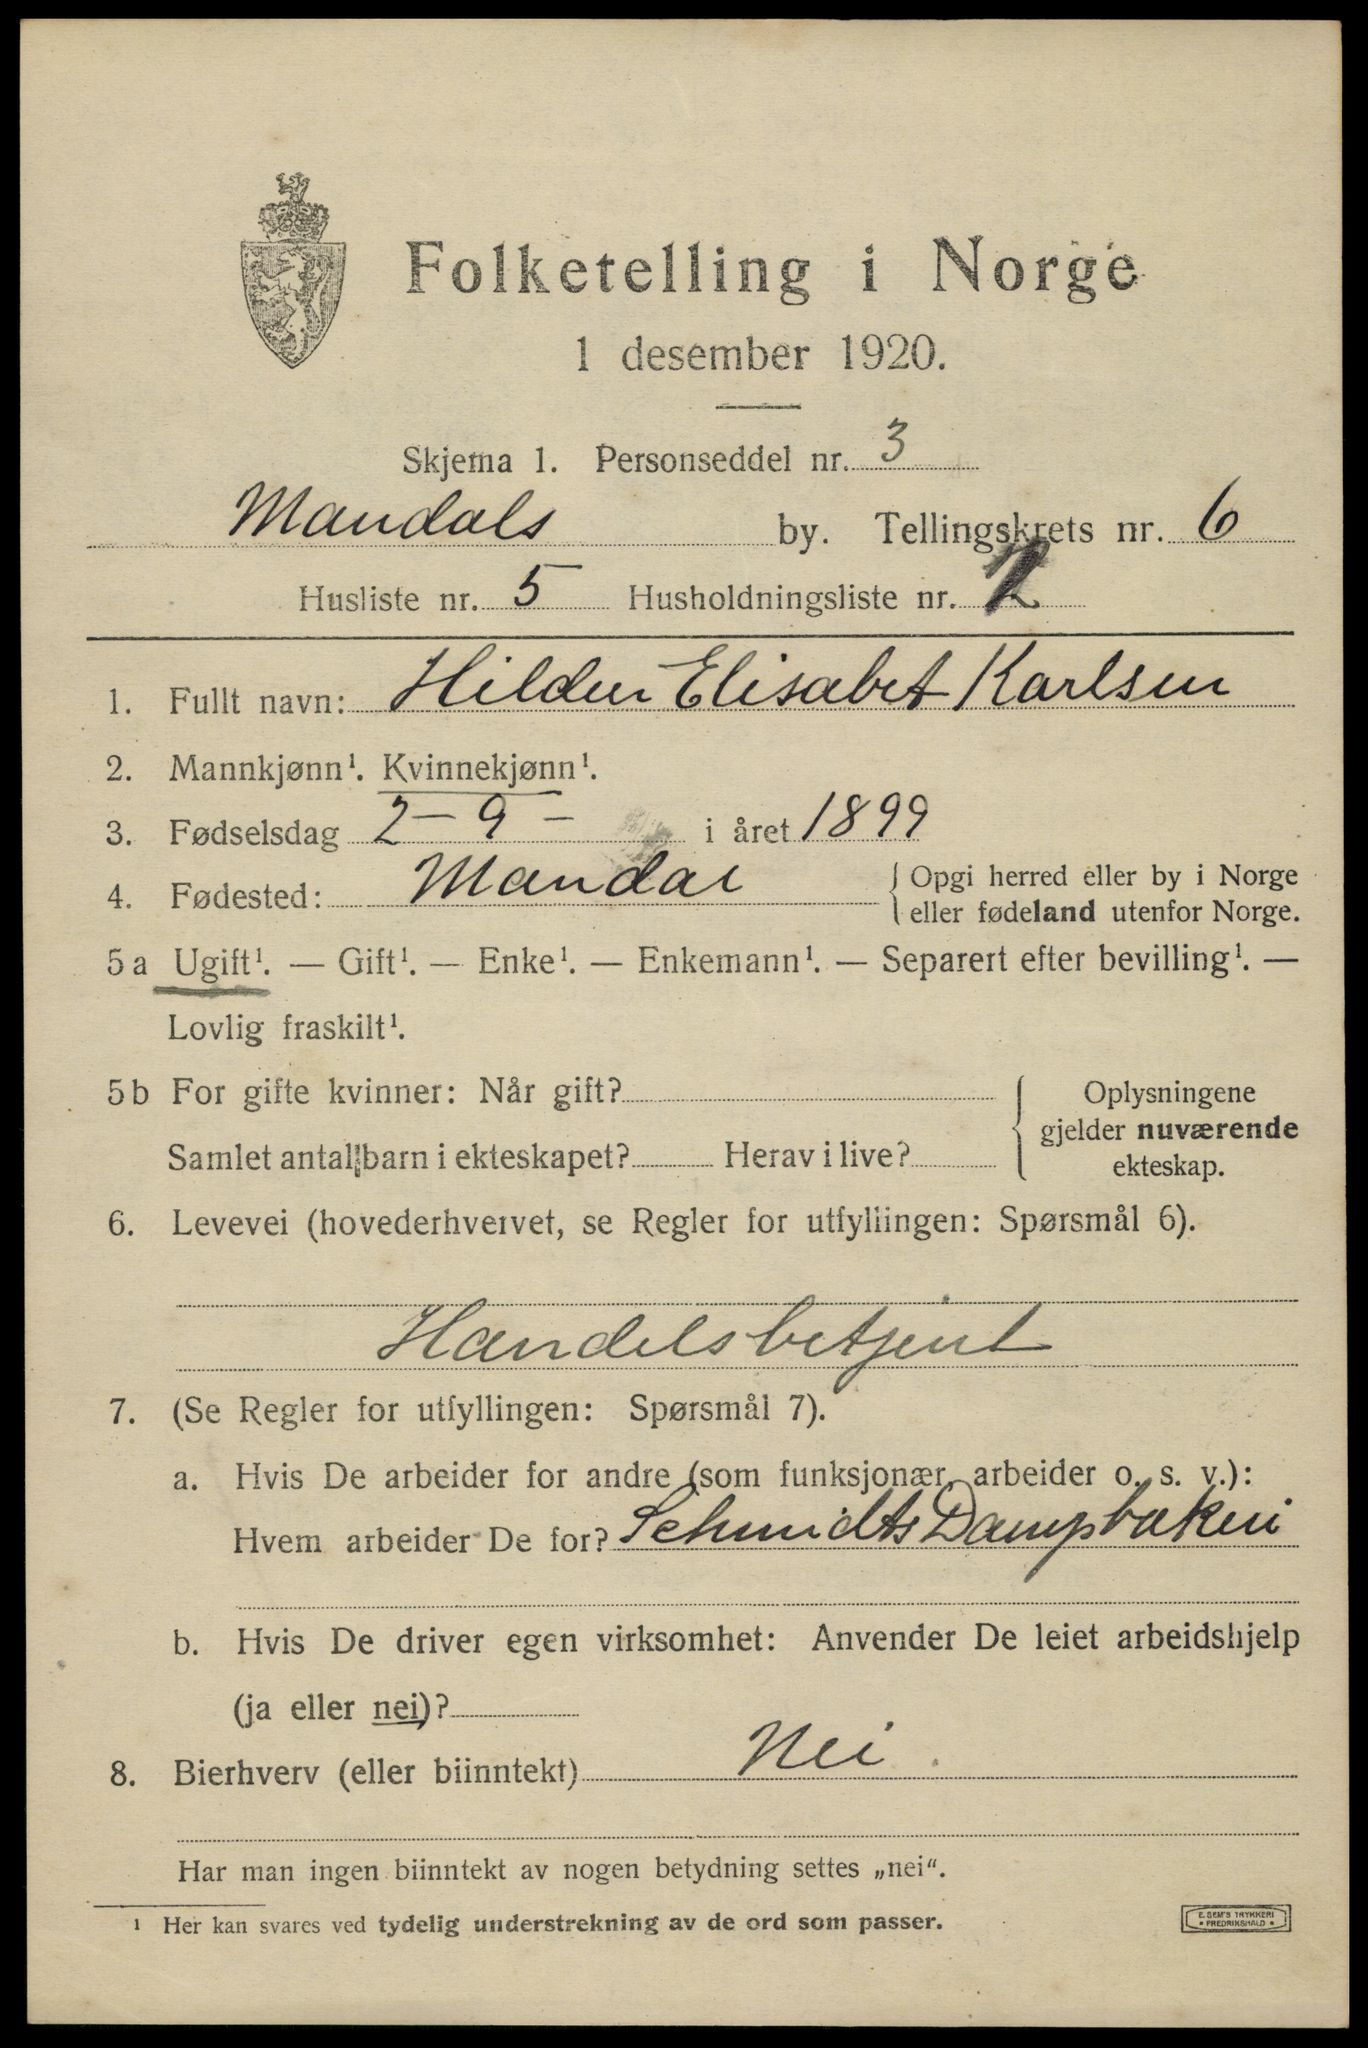 Folketelling i Norge
1 desember 1920.
Skjema 1. Personseddel nr. 3
Mandals by. Tellingskrets nr. 6
Husliste nr. 5 Husholdningsliste nr. 2
1. Fullt navn: Hildur Elisabet Karlsen
2. Mannkjønn¹. Kvinnekjønn¹.
3. Fødselsdag 2 - 9 - i året 1899
4. Fødested: Mandal { Opgi herred eller by i Norge
eller fødeland utenfor Norge.
5 a Ugift¹. — Gift¹. — Enke¹. — Enkemann¹. — Separert efter bevilling¹. —
Lovlig fraskilt¹.
5 b For gifte kvinner: Når gift?
Samlet antall barn i ekteskapet? Herav i live?
{ Oplysningene
gjelder nuværende
ekteskap.
6. Levevei (hovederhvervet, se Regler for utfyllingen: Spørsmål 6).
Handelsbetjent
7. (Se Regler for utfyllingen: Spørsmål 7).
a. Hvis De arbeider for andre (som funksjonær, arbeider o. s. v.):
Hvem arbeider De for? Schmidts Dampbakeri
b. Hvis De driver egen virksomhet: Anvender De leiet arbeidshjelp
(ja eller nei)?
8. Bierhverv (eller biinntekt) Nei.
Har man ingen biinntekt av nogen betydning settes „nei“.
¹ Her kan svares ved tydelig understrekning av de ord som passer.
E. SEM'S TRYKKERI
• FREDRIKSHALD •